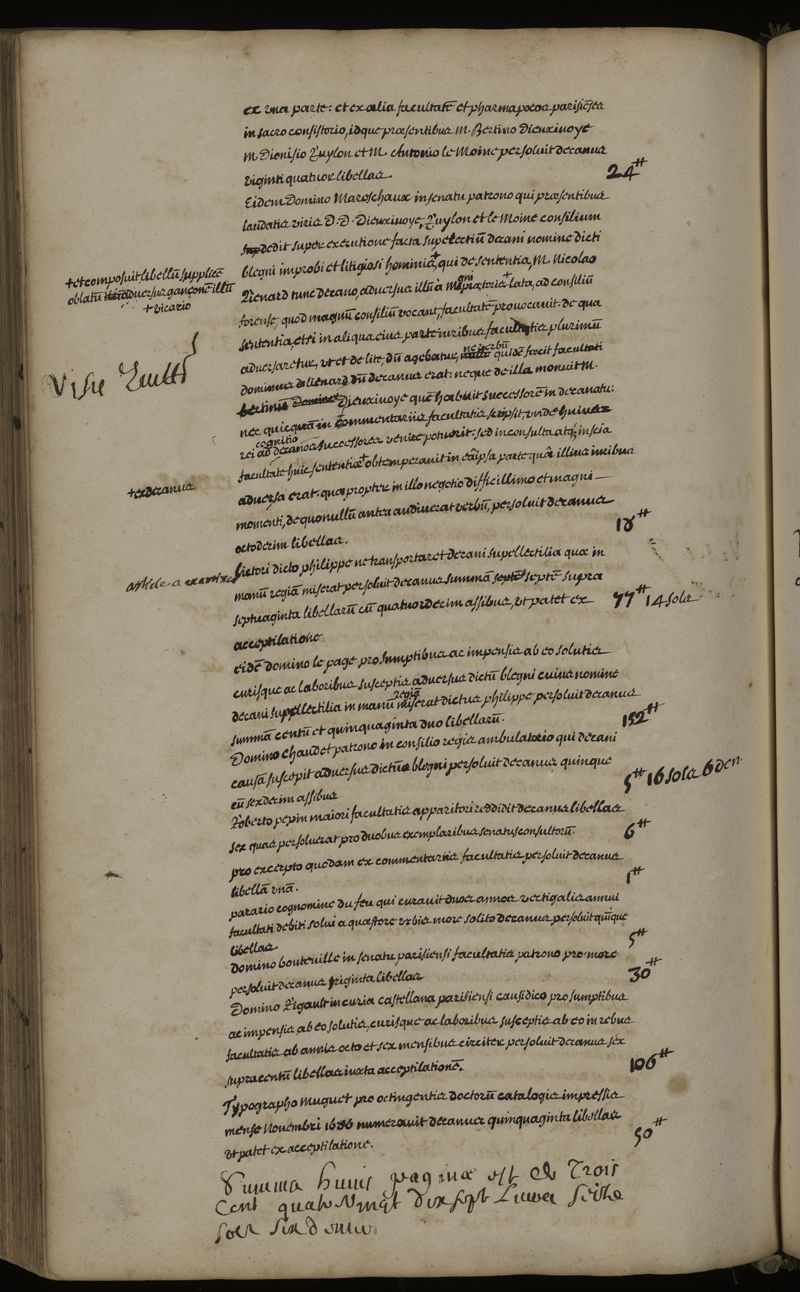 ex una parte: et ex alia facultatē et pharmapoeos parisiēses
in sacro consistorio, idque præsentibus M. Bertino Dieuxivoye
M Dionisio Puylon et M. Antonio le Moine persoluit decanus
viginti quatuor libellas. 24ᵗᵗ
Eidem Domino Mareschaux in senatu patrono qui præsentibus
laudatis viris D. D. Dieuxivoye, Puylon et le Moine consilium
dedit super executione facta supelectiū decani nomine dicti
blegni improbi et litigiosi hominis, + qui de sententia, M. Nicolao
+ et composuit libellū supplicē
oblatū adversus garçonē illū
+ vicario
Lienard tunc decano, adversus illū a prætoris + lata, ad consiliū
forense, quod magnum consiliū vocant, facultatē provocavit. de qua
sententia, etsi in aliqua eius parte iuribus facultatis plurimū
adversaretur, ut et de lite, dū agebatur, ne verbū quidē fecit facultati
Visie
dominus lienard dū decanus erat: neque de illa monuit M.
Dieuxivoye quē habuit successorē in decanatu:
nec quicquā in commentariis facultatis scripsit, unde huius
rei cognitio ad decanos successores venire potuerit: sed inconsulta atq; inscia
facultate huic sententiæ + obtemperavit in eā ipsa parte quæ illius iuribus
+ exdecanus
adversa erat. quapropter in illo negotio difficillimo et magni
momenti, de quo nullū antea audiverat verbū, persoluit decanus
octodecim libellas. 18ᵗᵗ
pictori dicto philippe ne transportaret decani supellectilia quæ in
article a examiner
manū regiā miserat persoluit decanus summā septē supra
septuaginta libellarū cū quatuordecim assibus, ut patet ex
acceptilatione 77ᵗᵗ 14 sols
eidē domino le page pro sumptibus ac impensis ab eo solutis
curisque ac laboribus susceptis adversus dictū blegni cuius nomine
decani supellectilia in manū regiā miserat dictus philippe persoluit decanus
summā centū et quinquaginta duo libellarū. 152ᵗᵗ
Domino chaudet patrono in consilio regis ambulatorio qui decani
causā suscepit adversus dictū blegni persoluit decanus quinque
cū sexdecim assibus 5ᵗᵗ 16 sols 6 den
Roberto pepin maiori facultatis apparitori reddidit decanus libellas
sex quas persolverat pro duobus exemplaribus senatusconsultorū. 6ᵗᵗ
pro excerpto quodam ex commentariis facultatis persoluit decanus
libellā unā. 1ᵗᵗ
parario cognomine du feu qui curavit duos annos vectigalis annui
facultati debiti solui a quæstore urbis more solito decanus persoluit quinque
libellas 5ᵗᵗ
Domino bouteuille in senatu parisiensi facultatis patrono pro more
persoluit decanus triginta libellas 30ᵗᵗ
Domino Rigault in curia castellana parisiensi causidico pro sumptibus
ac impensis ab eo solutis, curisque ac laboribus susceptis ab eo in rebus
facultatis ab annis octo et sex mensibus circiter persoluit decanus sex
supra centū libellas iuxta acceptilationē. 106ᵗᵗ
Typographo muguet pro octingentis doctorū catalogis impressis
mense Novembri 1686 numeravit decanus quinquaginta libellas
ut patet ex acceptilatione. 50ᵗᵗ
Summa huius paginæ est de Trois
Cent quatre Vingt dix sept Livres seise
sols six deniers